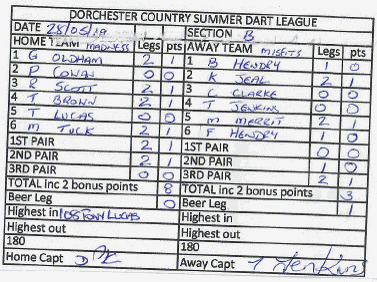 DORCHESTER COUNTRY SUMMER DART LEAGUE
DATE 28/05/19 SECTION B
HOME TEAM MADNESS Legs pts AWAY TEAM MISFITS Legs pts
1 G OLDHAM 2 1 1 B HENDRY 1 0
2 P COWAN 0 0 2 K SEAL 2 1
3 R SCOTT 2 1 3 C CLARKE 0 0
4 T BROWN 2 1 4 T JENKINS 0 0
5 T LUCAS 0 0 5 M MERRIT 2 1
6 M TUCK 2 1 6 F HENDRY 1 0
1ST PAIR 2 1 1ST PAIR 0 0
2ND PAIR 2 1 2ND PAIR 1 0
3RD PAIR 0 0 3RD PAIR 2 1
TOTAL inc 2 bonus points 8 TOTAL inc 2 bonus points 3
Beer Leg 0 Beer Leg 1
Highest in 108 TONY LUCAS Highest in
Highest out Highest out
180 180
Home Capt Away Capt T Jenkins